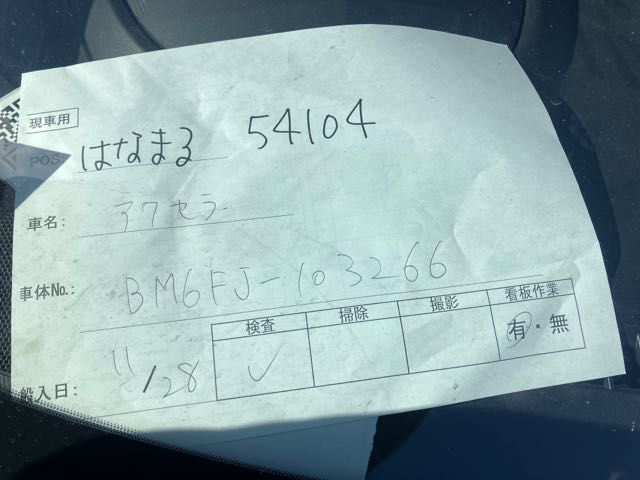 現車用
POS: はなまる 54104
車名: アクセラ
車体No.: BM6FJ-103266
検査 掃除 撮影 看板作業
✓ 有・無
般入日: 11/28